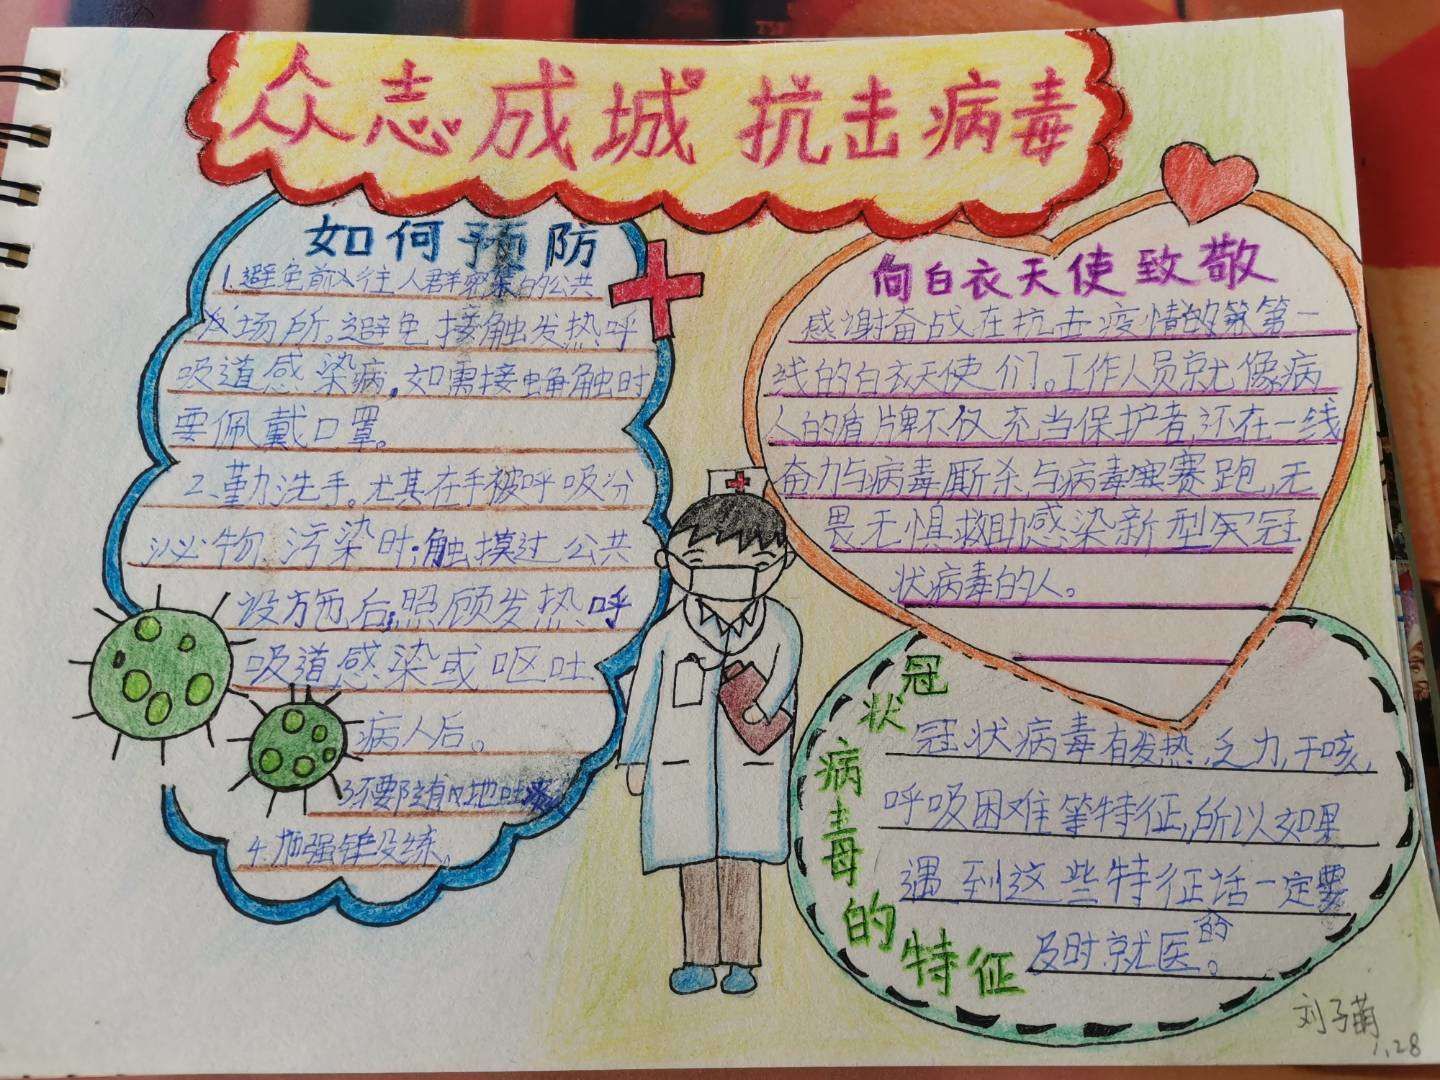 众志成城 抗击病毒
如何预防
1.避免前入往人群密集的公共
场所。避免接触发热呼
吸道感染病,如需接触时
要佩戴口罩。
2、勤洗手。尤其在手被呼吸分
泌物污染时;触摸过公共
设施后;照顾发热呼
吸道感染或呕吐
病人后。
3不要随地吐
4.加强锻练。
向白衣天使致敬
感谢奋战在抗击疫情的第一
线的白衣天使们。工作人员就像病
人的盾牌不仅充当保护者,还在一线
奋力与病毒厮杀,与病毒赛跑,无
畏无惧救助感染新型冠
状病毒的人。
冠状病毒的特征
冠状病毒有发热,乏力,干咳,
呼吸困难等特征,所以如果
遇到这些特征话一定要
及时就医的。
刘子萌
1.28